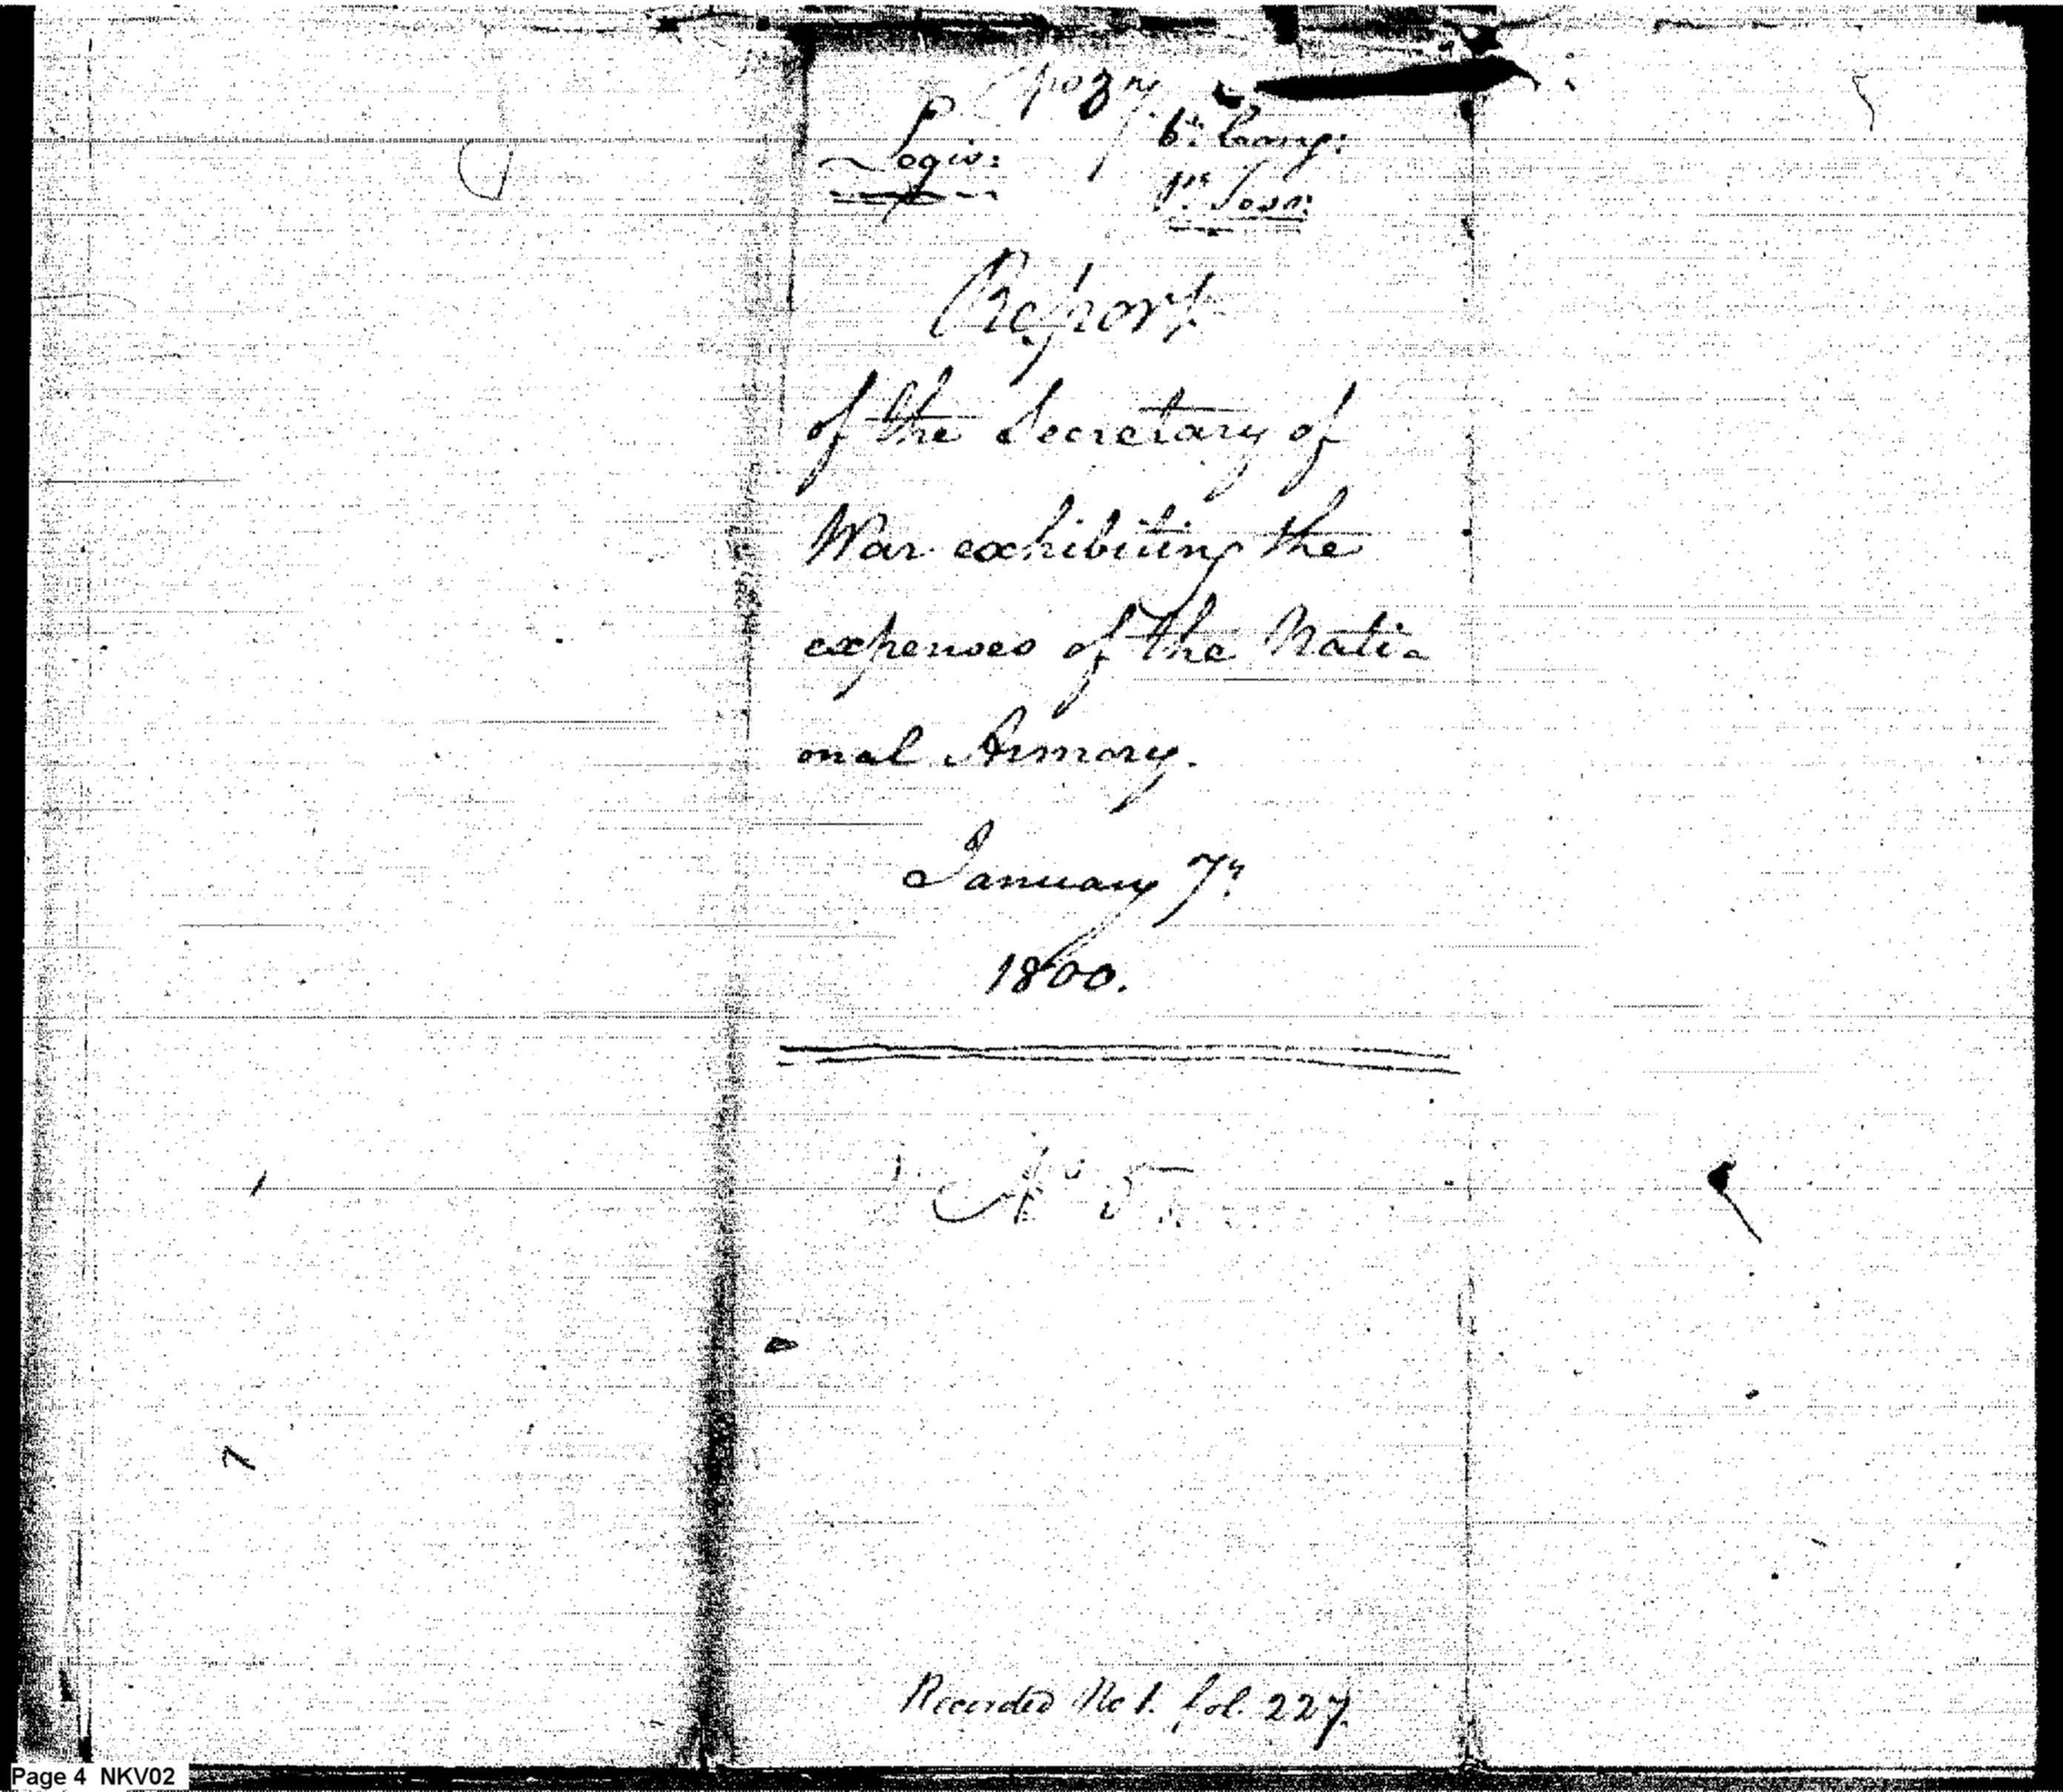 Legis: 6th Cong:
1st Sess:
Report
of the Secretary of
War exhibiting the
expenses of the Nati-
onal Armory.
January 7th
1800.
No 5
Recorded No 1. fol. 227.
Page 4 NKV02